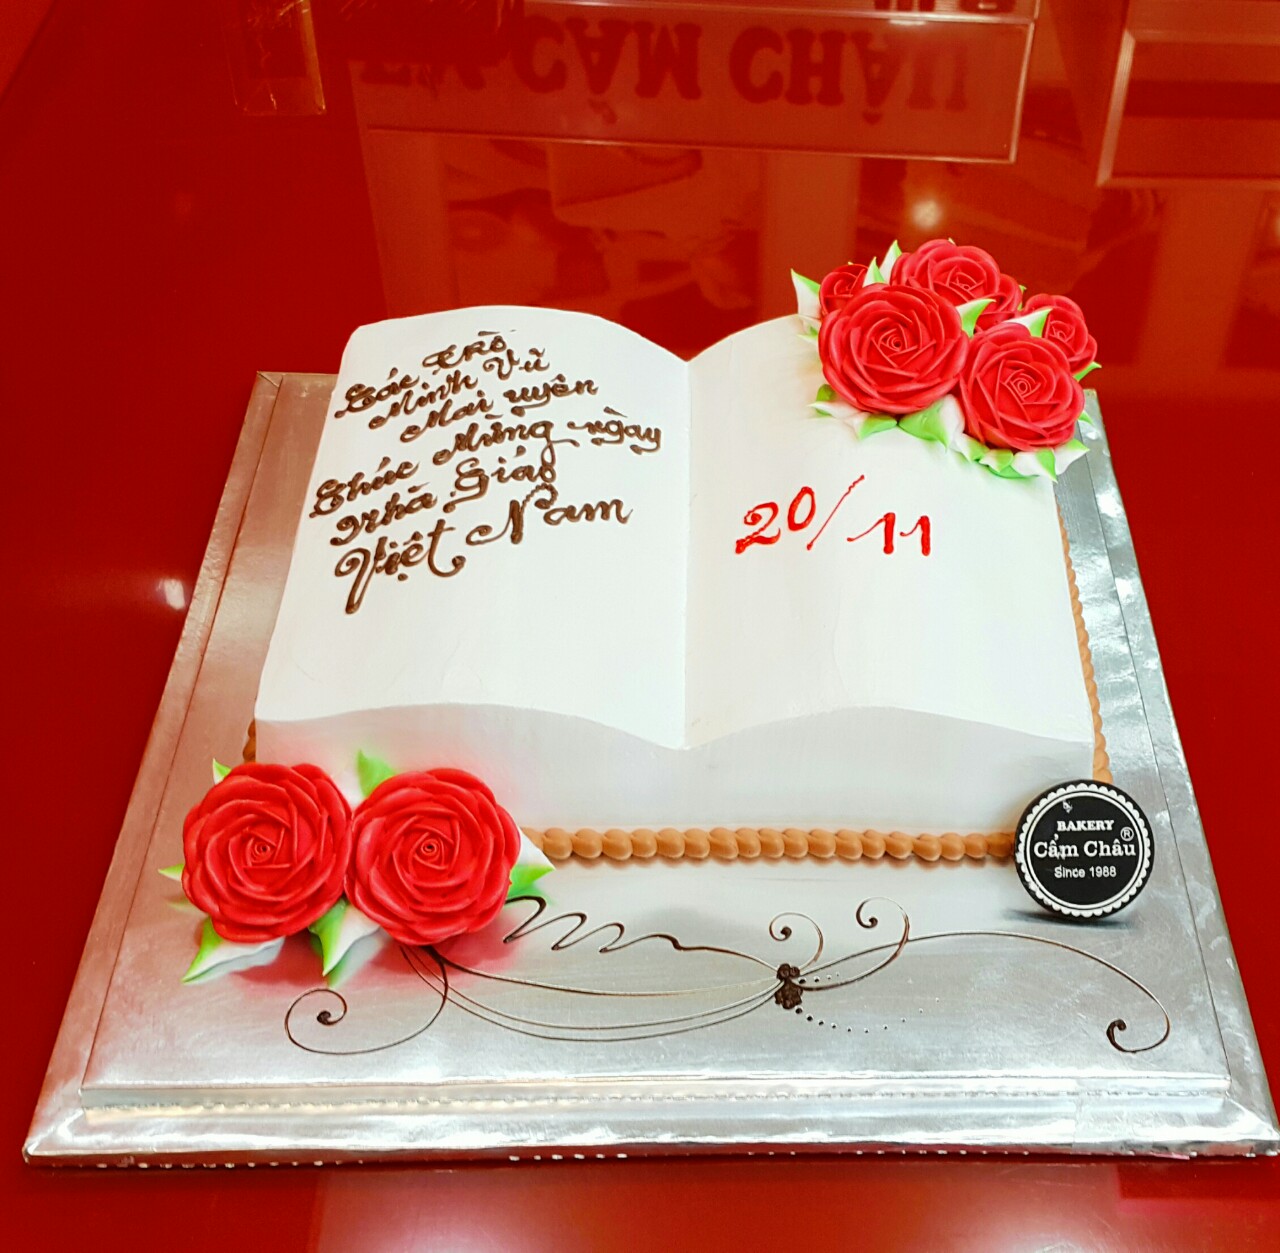 CẨM CHÂU
Các trò
Minh Vũ
Mai uyên
Chúc Mừng ngày
Nhà Giáo
Việt Nam
20/11
BAKERY
Cẩm Châu ®
Since 1988